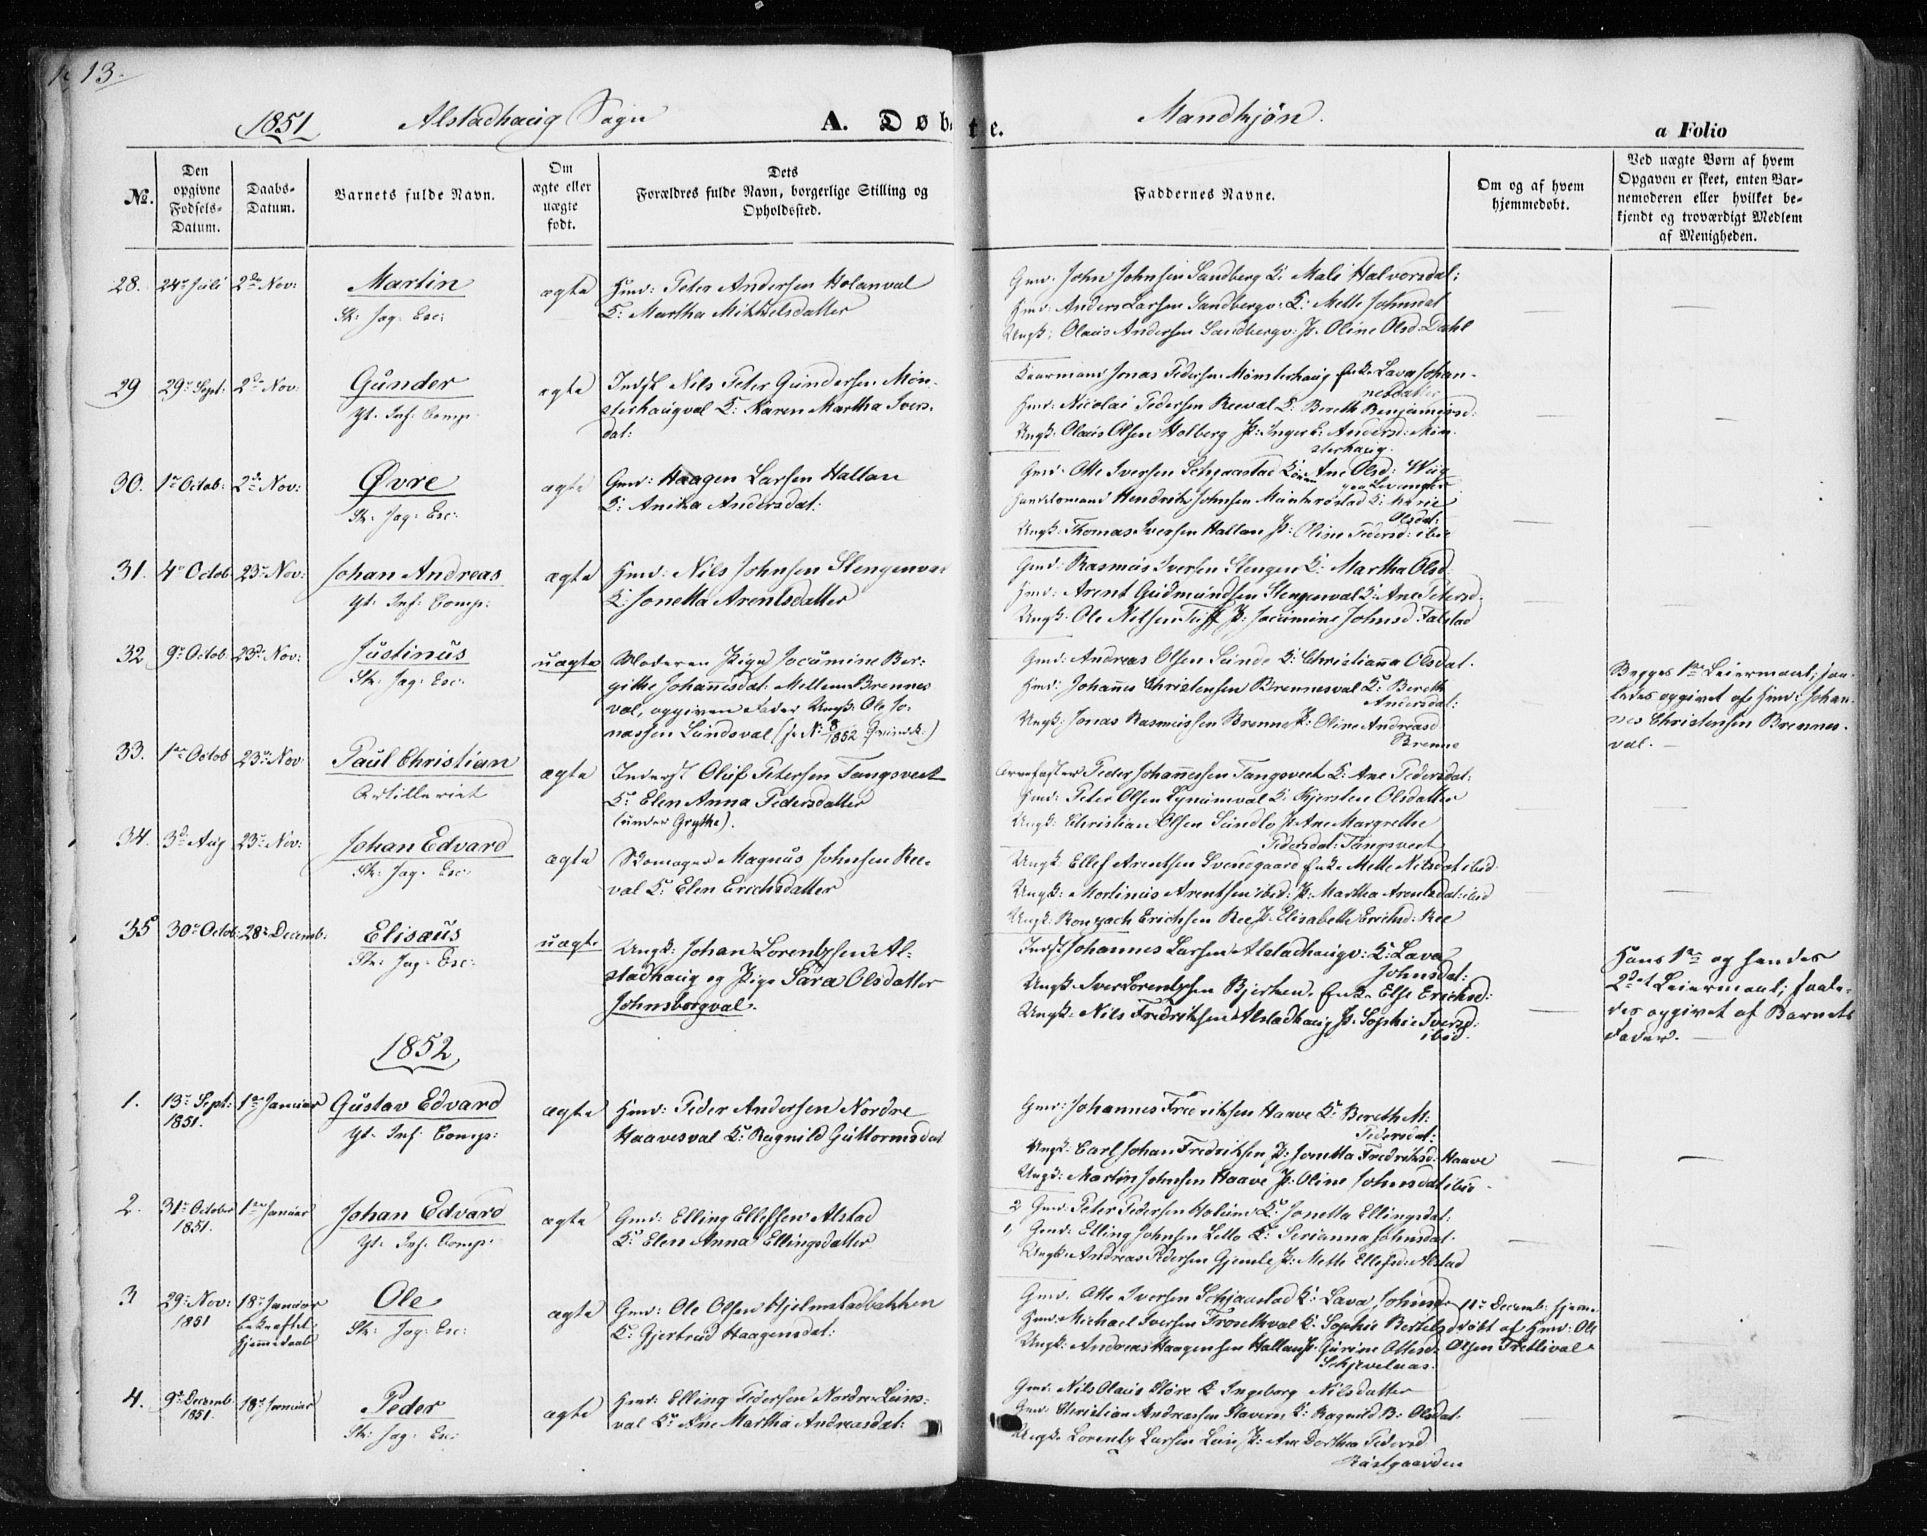 13.
1851 Alstadhaug Sogn A. Døbte. Mandkjøn.
a Folio
No.
Den
opgivne
Fødsels-
Datum.
Daabs-
Datum.
Barnets fulde Navn.
Om
ægte eller
uægte
født.
Dets
Forældres fulde Navn, borgerlige Stilling og
Opholdssted.
Faddernes Navne.
Om og af hvem
hjemmedøbt.
Ved uægte Børn af hvem
Opgaven er skeet, enten Bar-
nemoderen eller hvilket be-
kjendt og troværdigt Medlem
af Menigheden.
28. 24de Juli 2den Nov: Martin
Sk: Jag: Esc:
ægte
Hmd: Peter Andersen Holanval
K: Martha Mikkelsdatter
Gmd: John Johnsen Sandberg K: Mali Halvorsdat:
Hmd: Anders Larsen Sandbergv: K: Mette Johnsdat
Ungk: Olaus Andersen Sandbergv: P: Oline Olsd. Dahl
29 29de Sept: 2den Nov: Gunder
Yt. Inf: Comp:
ægte
Inderst Nils Peter Gundersen Møn-
sterhaugval K: Karen Martha Ivers-
dat:
Kaarmand Jonas Pedersen Mønsterhaug Enke Lava Johan-
nesdatter
Hmd: Nicolai Pedersen Reeval K: Bereth Benjaminsd:
Ungk: Olaus Olsen Holberg P: Ingerb: Andersd: Møn-
sterhaug.
30. 1ste Octob: 2den Nov: Øvre
Sk: Jag: Esc:
ægte
Gmd: Haagen Larsen Hallan
K: Anika Andersdat:
Gmd: Otte Iversen Schjaastad Kone Ane Olsd: Wiig
paa Levanger
Handelsmand Hendrik Johnsen K: Marie
Olsdat:
Ungk: Thomas Iversen Hallan P: Oline Pedersd: ibid
31. 4de Octob 23de Nov: Johan Andreas
Yt. Inf: Comp:
ægte
Hmd: Nils Johnsen Stengenval
K: Jonetta Arentsdatter
Gmd: Rasmus Iversen Stengen K: Martha Olsd:
Hmd: Arent Gudmundsen Stengenval K: Ane Petersd.
Ungk: Ole Nilsen Tuff P: Jacumine Johnsd Falstad
32 9de Octob 23de Nov: Justinus
Sk: Jag: Esc:
uægte
Moderen Pige Jocumine Ber-
githe Johannesdat: Mellem Brennes
val, opgiven Fader Ungk: Ole Jo-
nassen Lundsval (see N: 8/1852 Qvindek:)
Gmd: Andreas Olsen Sunde K: Christianna Olsdat.
Hmd: Johannes Christensen Brennesval K: Bereth
Andersdat:
Ungk: Jonas Rasmussen Brenne P: Oline Andreasd
Brenne
Begges 1ste Leiermaal; saa-
ledes opgivet af Hmd: Johan-
nes Christensen Brennes-
val.
33. 1ste Octob 23de Nov Paul Christian
Artilleriet
ægte
Inderst Oluf Petersen Tangsveet
K: Elen Anna Pedersdatter
(under Grythe).
Peder Johannessen Tangsveet K: Ane Pedersdat:
Hmd: Peter Olsen Lynumval K: Kjersten Olsdatter
Ungk: Christian Olsen Sundlo P: Ane Margrethe
Pedersdat: Tangsveet
34. 3de Aug 23de Nov: Johan Edvard
Sk: Jag: Esc:
ægte
Skomager Magnus Johnsen Ree-
val K: Elen Erichsdatter
Ungk: Ellef Arentsen Svendgaard Enke Mette Nilsdat ibid.
Ungk: Mortinus Arentsen ibid: P: Martha Arentsdat: ibid
Ungk: Erichsen Ree P: Elisabeth Erichsd: Ree
35 30te Octob: 28de Decemb: Elisæus
Sk: Jag: Esc:
uægte
Ungk: Johan Lorentzsen Al-
stadhaug og Pige Sara Olsdatter
Johnsborgval.
Inderst Johannes Larsen Alstadhaugv: K: Lava
Johnsdat:
Ungk: Iver Lorentzsen Bjerken, Enke Else Erichsd:
Ungk: Nils Fredriksen Alstadhaug P: Sophie Iversd:
ibid.
Hans 1ste og hendes
2det Leiermaal; saale-
des opgivet af Barnets
Fader.
1852
1. 13de Sept: 1ste Januar Gustav Edvard
1851. Yt. Inf: Comp:
ægte
Hmd: Peder Andersen Nordre
Haavesval K: Ragnild Guttormsdat
Gmd: Johannes Fredriksen Haave K: Bereth M:
Pedersdat:
Ungk: Carl Johan Fredriksen P: Jonetta Fredriksd: Haave
Ungk: Martin Johnsen Haave P: Oline Johnsdat ibid.
2. 31te October 1ste Januar Johan Edvard
1851. Yt. Inf: Comp:
ægte
Gmd: Elling Ellefsen Alstad
K: Elen Anna Ellingsdatter
2 Gmd: Peter Pedersen Holum K: Jonetta Ellingsdat:
1, Gmd: Elling Johnsen Lello K: Serianna Johnsdat.
Ungk: Andreas Pedersen Gjemle P: Mette Ellefsd: Alstad
3 29de Nov: 18de Januar Ole
1851 bekræftet
Hjemmedaab
Sk: Jag: Esc:
ægte
Gmd: Ole Olsen Hjelmstadbakken
K: Gjertrud Haagensdat:
Gmd: Otte Iversen Schjaastad K: Lava Johnsd
Hmd: Michael Iversen Frosethval K: Sophie Bertelsd
Ungk: Andreas Haagensen Hallan P: Gurine Ottesd:
Schjevelnæs.
11te Decemb: hjemme-
døbt af Hmd: Ole
Olsen Tretlival
4. 9de Decemb 18de Januar Peder
1851. Sk: Jag: Esc:
ægte
Hmd: Elling Pedersen Nordre Leins-
val K: Ane Martha Andreasdat:
Gmd: Nils Olaus Støre K: Ingeborg Nilsdatter
Gmd: Christian Andreassen Stavern K: Ragnild B: Olsdat:
Ungk: Lorentz Larsen Lein P: Ane Dorthea Pedersd
Røstgaarden